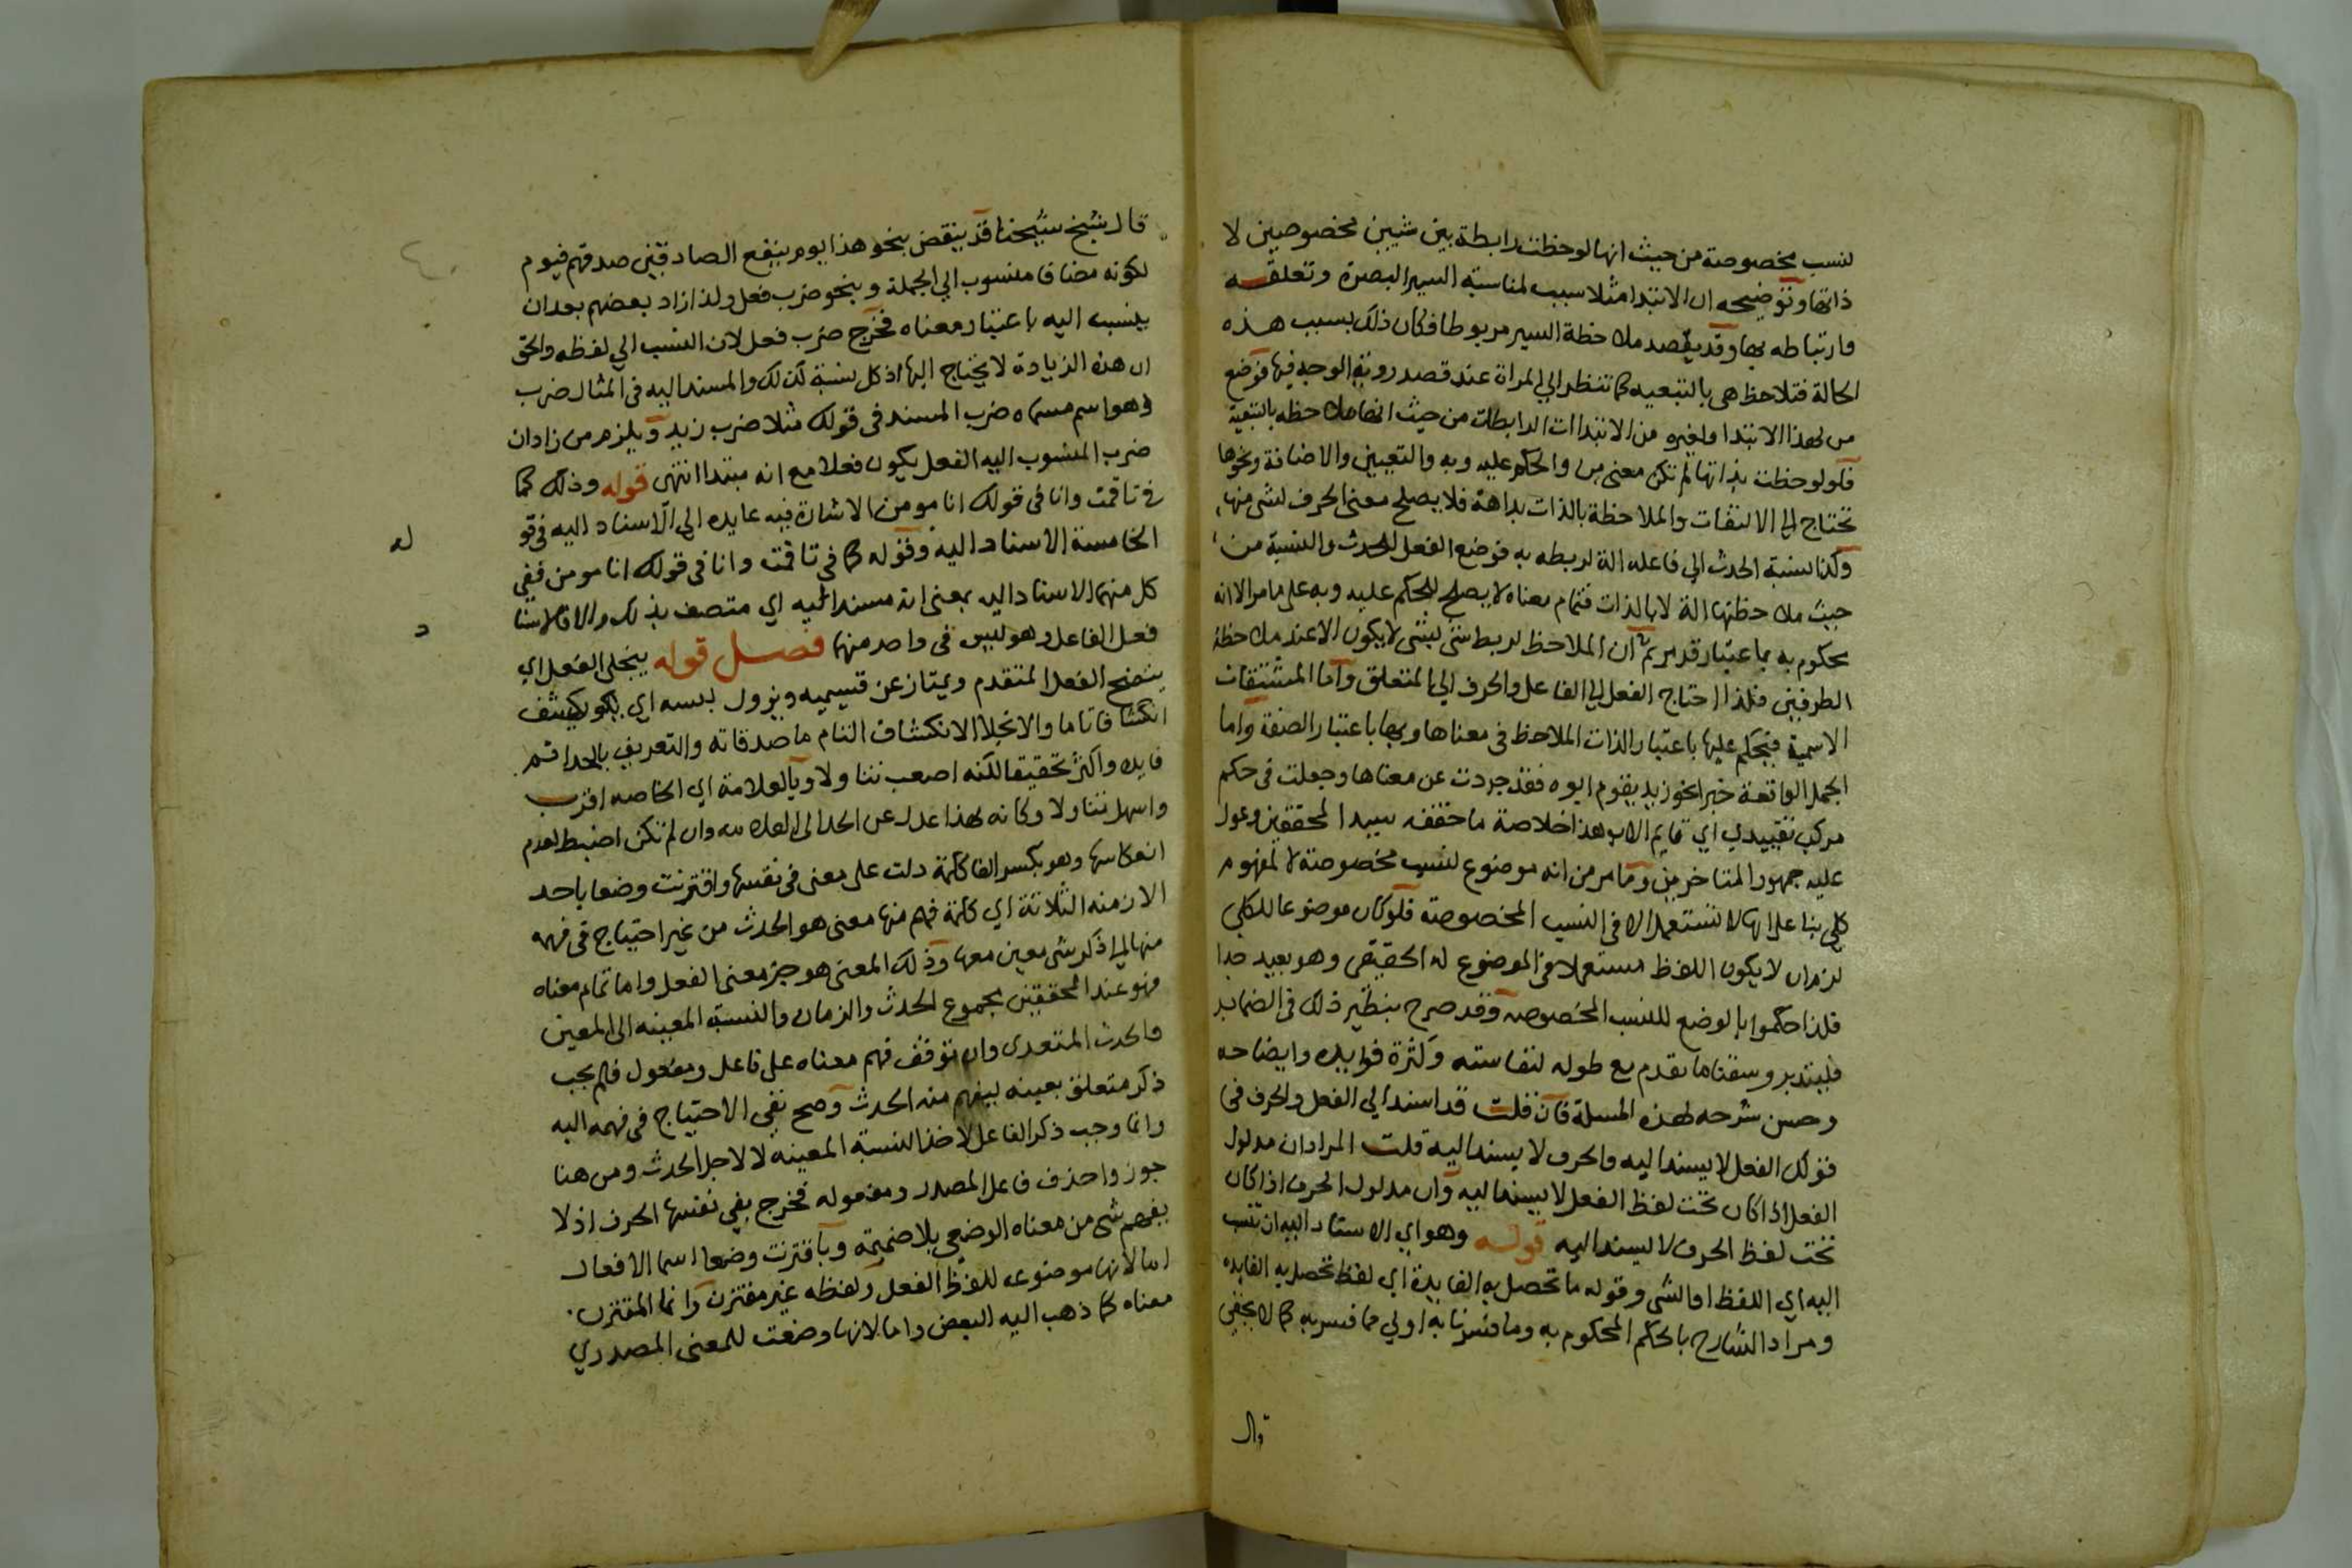 لنسب مخصوصة من حيث انها لوحظت رابطة بين شيين مخصوصين لا
ذاتها وتوضيحه ان الابتدا مثلا سبب لمناسبة السير البصرة وتعلقه
وارتباطه بها وقد يقصد ملاحظة السير مربوطا فكان ذلك بسبب هذه
الحالة فتلاحظ هي بالتبعيه كما تنظر الي المراة عند قصد روية الوجه فيها فوضع
من لهذا الابتدا ولغيره من الابتداات الرابطات من حيث انها ملاحظه بالتبعية
فلو لوحظت بذاتها لم تكن معنى من والحكم عليه وبه والتعيين والاضافة ونحوها
تحتاج الى الالتفات والملاحظة بالذات بداهة فلا يصلح معنى الحرف لشى منها
وكذا نسبة الحدث الي فاعله الة لربطه به فوضع الفعل للحدث والنسبة من
حيث ملاحظتها الة لا بالذات فتمام معناه لا يصلح للحكم عليه وبه على ما مر الا انه
محكوم به باعتبار قد مر ثم ان الملاحظ لربط شى بشى لا يكون الا عند ملاحظة
الطرفين فلذا احتاج الفعل الي الفاعل والحرف الي المتعلق واما المشتقات
الاسمية فيحكم عليها باعتبار الذات الملاحظ في معناها وبها باعتبار الصفة واما
الجمل الواقعة خبرا نحو زيد يقوم ابوه فقد جردت عن معناها وجعلت في حكم
مركب تقييدي اي قايم الاب هذا خلاصة ما حققه سيد المحققين وعول
عليه جمهور المتاخرين وما مر من انه موضوع لنسب مخصوصة لا لمفهوم
كلي بنا على انها لا تستعمل الا في النسب المخصوصة فلو كان موضوعا للكلي
لزم ان لا يكون اللفظ مستعملا في الموضوع له الحقيقي وهو بعيد جدا
فلذا حكموا بالوضع للنسب المخصوصه وقد صرح بنظير ذلك في الضماير
فليتدبر وسقنا ما تقدم مع طوله لنفاسته وكثرة فوايده وايضاحه
وحسن شرحه لهذه المسلة فان قلت قد اسند الي الفعل والحرف في
قولك الفعل لا يسند اليه والحرف لا يسند اليه قلت المراد ان مدلول
الفعل اذا كان تحت لفظ الفعل لا يسند اليه وان مدلول الحرف اذا كان
تحت لفظ الحرف لا يسند اليه قوله وهو اي الاسناد اليه ان تنسب
اليه اي اللفظ او الشى وقوله ما تحصل به الفايدة اي لفظ تحصل به الفايده
ومراد الشارح بالحكم المحكوم به وما فسرنا به اولي مما فسر به كما لا يخفي
قال
قال شيخ شيخنا قد ينقض بنحو هذا يوم ينفع الصادقين صدقهم فيوم
لكونه مضافا منسوب الي الجملة وبنحو ضرب فعل ولذا زاد بعضهم بعد ان
ينسب اليه باعتبار معناه فخرج ضرب فعل لان النسب الي لفظه والحق
ان هذه الزيادة لا يحتاج اليها اذ كل نسبة كذلك والمسند اليه في المثال ضرب
وهو اسم مسماه ضرب المسند في قولك مثلا ضرب زيد ويلزم من زاد ان
ضرب المنسوب اليه الفعل يكون فعلا مع انه مبتدا انتهى قوله وذلك كما
في تا قمت وانا في قولك انا مومن الاشارة فيه عايده الى الاسناد اليه في قو له
الخامسة الاسناد اليه وقوله كما في تا قمت وانا في قولك انا مومن ففي
كل منهما الاسناد اليه بمعنى انه مسند اليه اي متصف بذلك والا فالاسنا د
فعل الفاعل وهو ليس في واحد منهما فصل قوله ينجلي الفعل اي
يتضح الفعل المتقدم ويمتاز عن قسيميه ويزول لبسه اي ينكشف
انكشافا تاما والانجلا الانكشاف التام ما صدقاته والتعريف بالحد اتم
فايده واكثر تحقيقا لكنه اصعب تناولا وبالعلامة اي الخاصه اقرب
واسهل تناولا وكانه لهذا عدل عن الحد الى العلامه وان لم تكن اضبط لعدم
انعكاسها وهو بكسر الفا كلمة دلت على معنى في نفسها واقترنت وضعا باحد
الازمنه الثلاثة اي كلمة فهم منها معنى هو الحدث من غير احتياج في فهمه
منها الي ذكر شى معين معها وذلك المعنى هو جز معنى الفعل واما تمام معناه
فهو عند المحققين مجموع الحدث والزمان والنسبة المعينه الى المعين
والحدث المتعدى وان توقف فهم معناه على فاعل ومفعول فلم يجب
ذكر متعلق بعينه ليفهم منه الحدث وصح نفي الاحتياج في فهمه اليه
وانما وجب ذكر الفاعل لاخذ النسبة المعينه لا لاجل الحدث ومن هنا
جوزوا حذف فاعل المصدر ومفعوله فخرج بفي نفسها الحرف اذ لا
يفهم شى من معناه الوضعي بلا ضميمة وباقترنت وضعا اسما الافعال
اما لانها موضوع للفظ الفعل ولفظه غير مقترن وانما المقترن
معناه كما ذهب اليه البعض واما لانها وضعت للمعنى المصدري